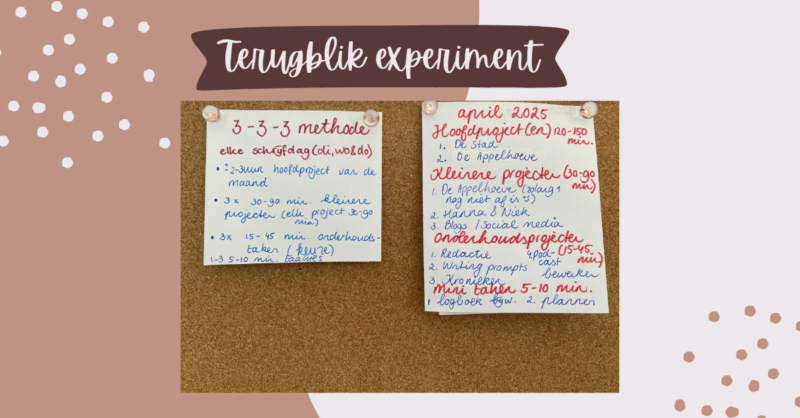 Terugblik experiment
3-3-3 methode
elke schrijfdag (di, wo & do)
• ± 2-3 uur hoofdproject van de
maand
• 3x 30-90 min. kleinere
projecten (elk project 30-90
min)
• 3x 15-45 min. onderhouds-
taken (keuze)
1-3 5-10 min. taakjes
april 2025
Hoofdproject(en) 120-150
min.
1. De Stad
2. De Appelhoeve
Kleinere projecten (30-90
min)
1. De Appelhoeve (zolang 1
nog niet af is :))
2. Hanna & Niek
3. Blogs / Social media
Onderhoudsprojecten
(15-45
min)
1. Redactie
2. Writing prompts
3. Kronieken
4 Podcast
bewerken
Mini taken 5-10 min.
1 logboek bijw. 2. plannen